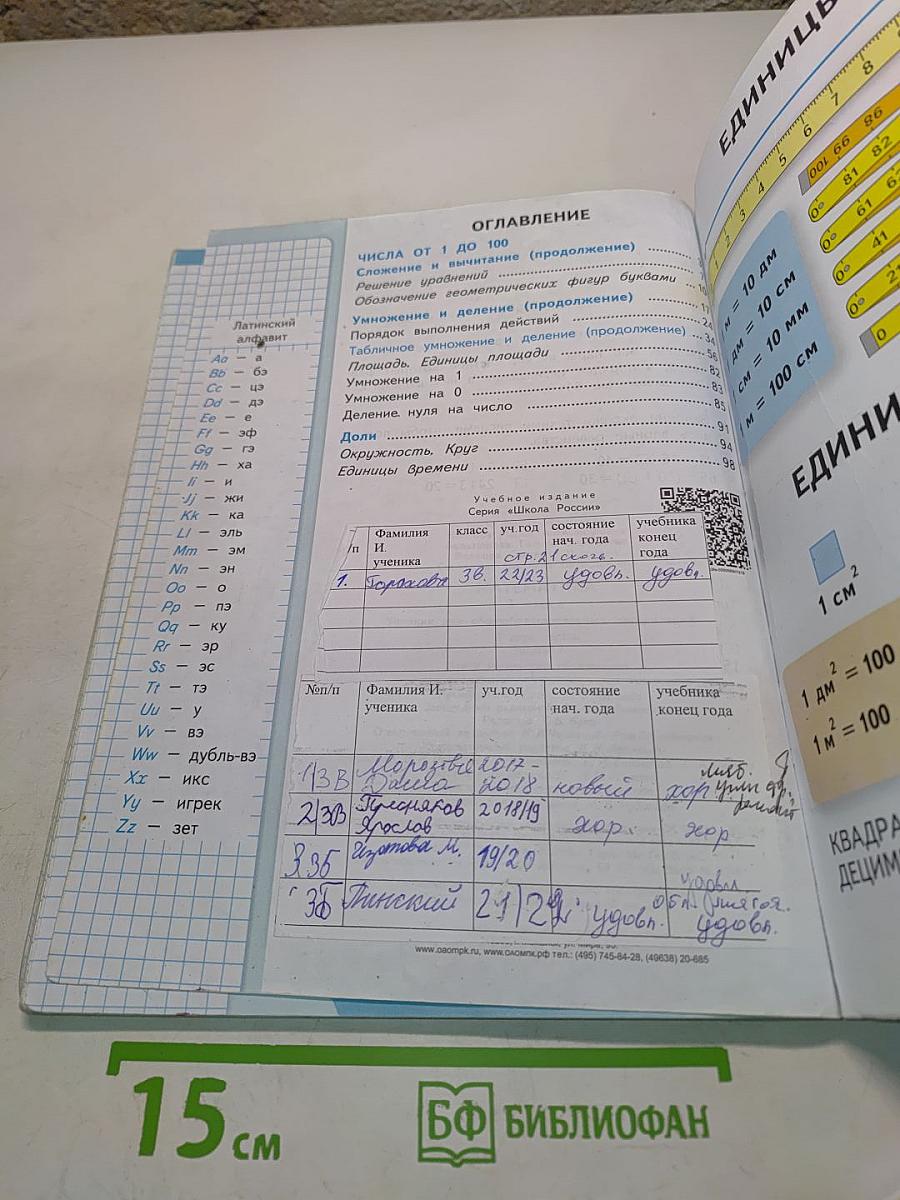 ОГЛАВЛЕНИЕ
ЧИСЛА ОТ 1 ДО 100
Сложение и вычитание (продолжение)
Решение уравнений
Обозначение геометрических фигур буквами
Умножение и деление (продолжение)
Порядок выполнения действий 24
Табличное умножение и деление (продолжение) 34
Площадь. Единицы площади 56
Умножение на 1 82
Умножение на 0 83
Деление нуля на число 85
Доли 91
Окружность. Круг 94
Единицы времени 98
Учебное издание
Серия «Школа России»
/п Фамилия И. ученика класс уч.год состояние нач. года учебника конец года
стр. 21
1. 3в. 22/23 удовл. удовл.
№п/п Фамилия И. ученика уч.год состояние нач. года учебника конец года
1/3В Даша 2017-2018 новый хор
2/3В Ярослав 2018/19 хор. хор
3 3б М. 19/20
удовл.
3б Пинский 21/22 удовл. удовл.
www.oaompk.ru, www.ОАОМПК.рф тел.: (495) 745-84-28, (49638) 20-685
Латинский
алфавит
Aa — а
Bb — бэ
Cc — цэ
Dd — дэ
Ee — е
Ff — эф
Gg — гэ
Hh — ха
Ii — и
Jj — жи
Kk — ка
Ll — эль
Mm — эм
Nn — эн
Oo — о
Pp — пэ
Qq — ку
Rr — эр
Ss — эс
Tt — тэ
Uu — у
Vv — вэ
Ww — дубль-вэ
Xx — икс
Yy — игрек
Zz — зет
ЕДИНИЦЫ
1 2 3 4 5 6 7 8
100 99 98
0 81 82
0 61
0 41
0
м = 10 дм
дм = 10 см
см = 10 мм
1 м = 100 см
ЕДИНИ
1 см²
1 дм² = 100
1 м² = 100
КВАДРА
ДЕЦИМ
15 см
БФ БИБЛИОФАН